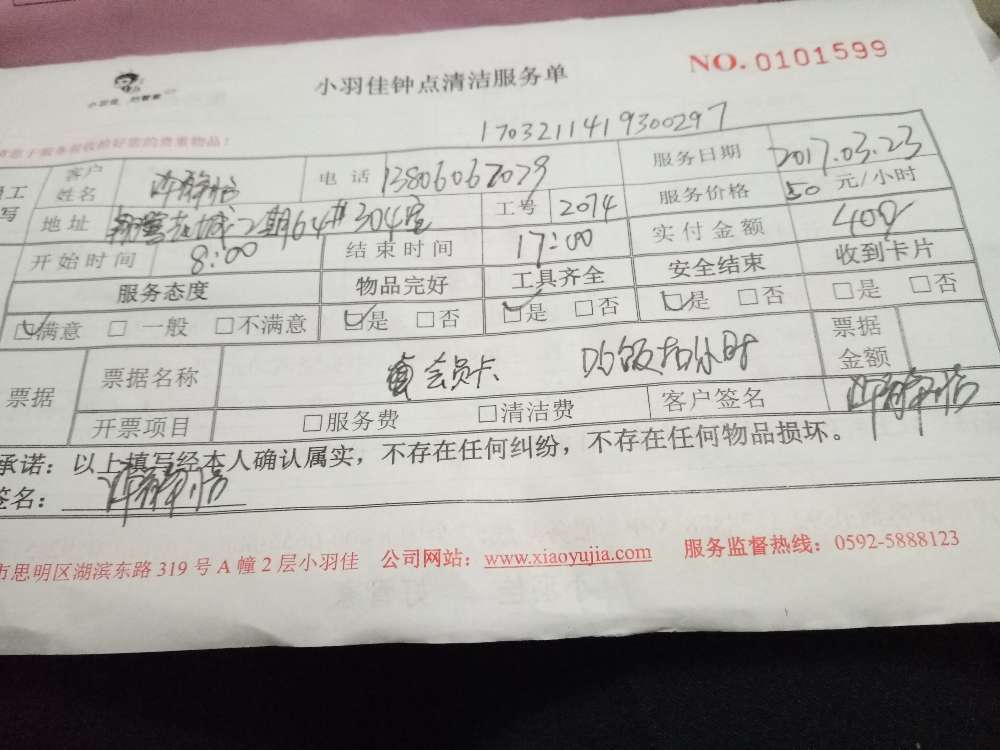 小羽佳钟点清洁服务单
NO.0101599
小羽佳 好管家
1703211419300297
客户姓名 电话 13806062079 服务日期 2017.03.23
地址 2期64#304室 工号 2074 服务价格 50 元/小时
开始时间 8:00 结束时间 17:00 实付金额
服务态度 物品完好 工具齐全 安全结束 收到卡片
□满意 □一般 □不满意 □是 □否 □是 □否 □是 □否 □是 □否
票据 票据名称 会员卡 票据金额
开票项目 □服务费 □清洁费 客户签名
承诺：以上填写经本人确认属实，不存在任何纠纷，不存在任何物品损坏。
签名：
市思明区湖滨东路319号A幢2层小羽佳 公司网站：www.xiaoyujia.com 服务监督热线：0592-5888123